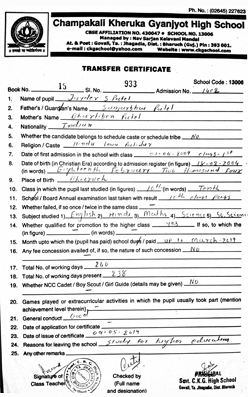 Ph. No. : (02645) 227623
Champakali Kheruka Gyanjyot High School
CBSE AFFILATION NO. 430047 ✦ SCHOOL NO. 13006
Managed by : Nav Sarjan Kalavani Mandal
At. & Post : Govali, Ta. : Jhagadia, Dist. : Bharuch (Guj.) Pin : 393 001.
e-mail : ckgschool@yahoo.com Website : www.ckgschool.com
TRANSFER CERTIFICATE
School Code : 13006
Book No. 15 933 Admission No. 1402
1. Name of pupil Patel
2. Father's / Guardian's Name Patel
3. Mother's Name Patel
4. Nationality Indian
5. Whether the candidate belongs to schedule caste or schedule tribe NO
6. Religion / Caste Hindu
7. Date of first admission in the school with class
8. Date of birth (in Christian Era) according to admission register (in figure) 18-02-2004
(in words) Eighteenth February Two Thousand Four
9. Place of Birth Bharuch
10. Class in which the pupil last studied (in figure) 10th (in words) Tenth
11. School / Board Annual examination last taken with result 10th class Pass
12. Whether failed, if so once / twice in the same class
13. Subject studied 1) English 2) Hindi 3) Maths 4) Science 5) S. Science
14. Whether qualified for promotion to the higher class yes If so, to which class
(in figure) (in words)
15. Month upto which the (pupil has paid) school dues / paid up to March-2019
16. Any fee concession availed of, if so, the nature of such concession NO
17. Total No. of working days 260
18. Total No. of working days present 238
19. Whether NCC Cadet / Boy Scout / Girl Guide (details may be given) NO
20. Games played or extracurricular activities in which the pupil usually took part (mention
achievement level therein)
21. General conduct Good
22. Date of application for certificate
23. Date of issue of certificate
24. Reasons for leaving the school study for higher education
25. Any other remarks
Signature of
Class Teacher
Checked by
(Full name
and designation)
PRINCIPAL
Smt. C.K.G. High School
Govali, Ta. Jhagadia, Dist. Bharuch